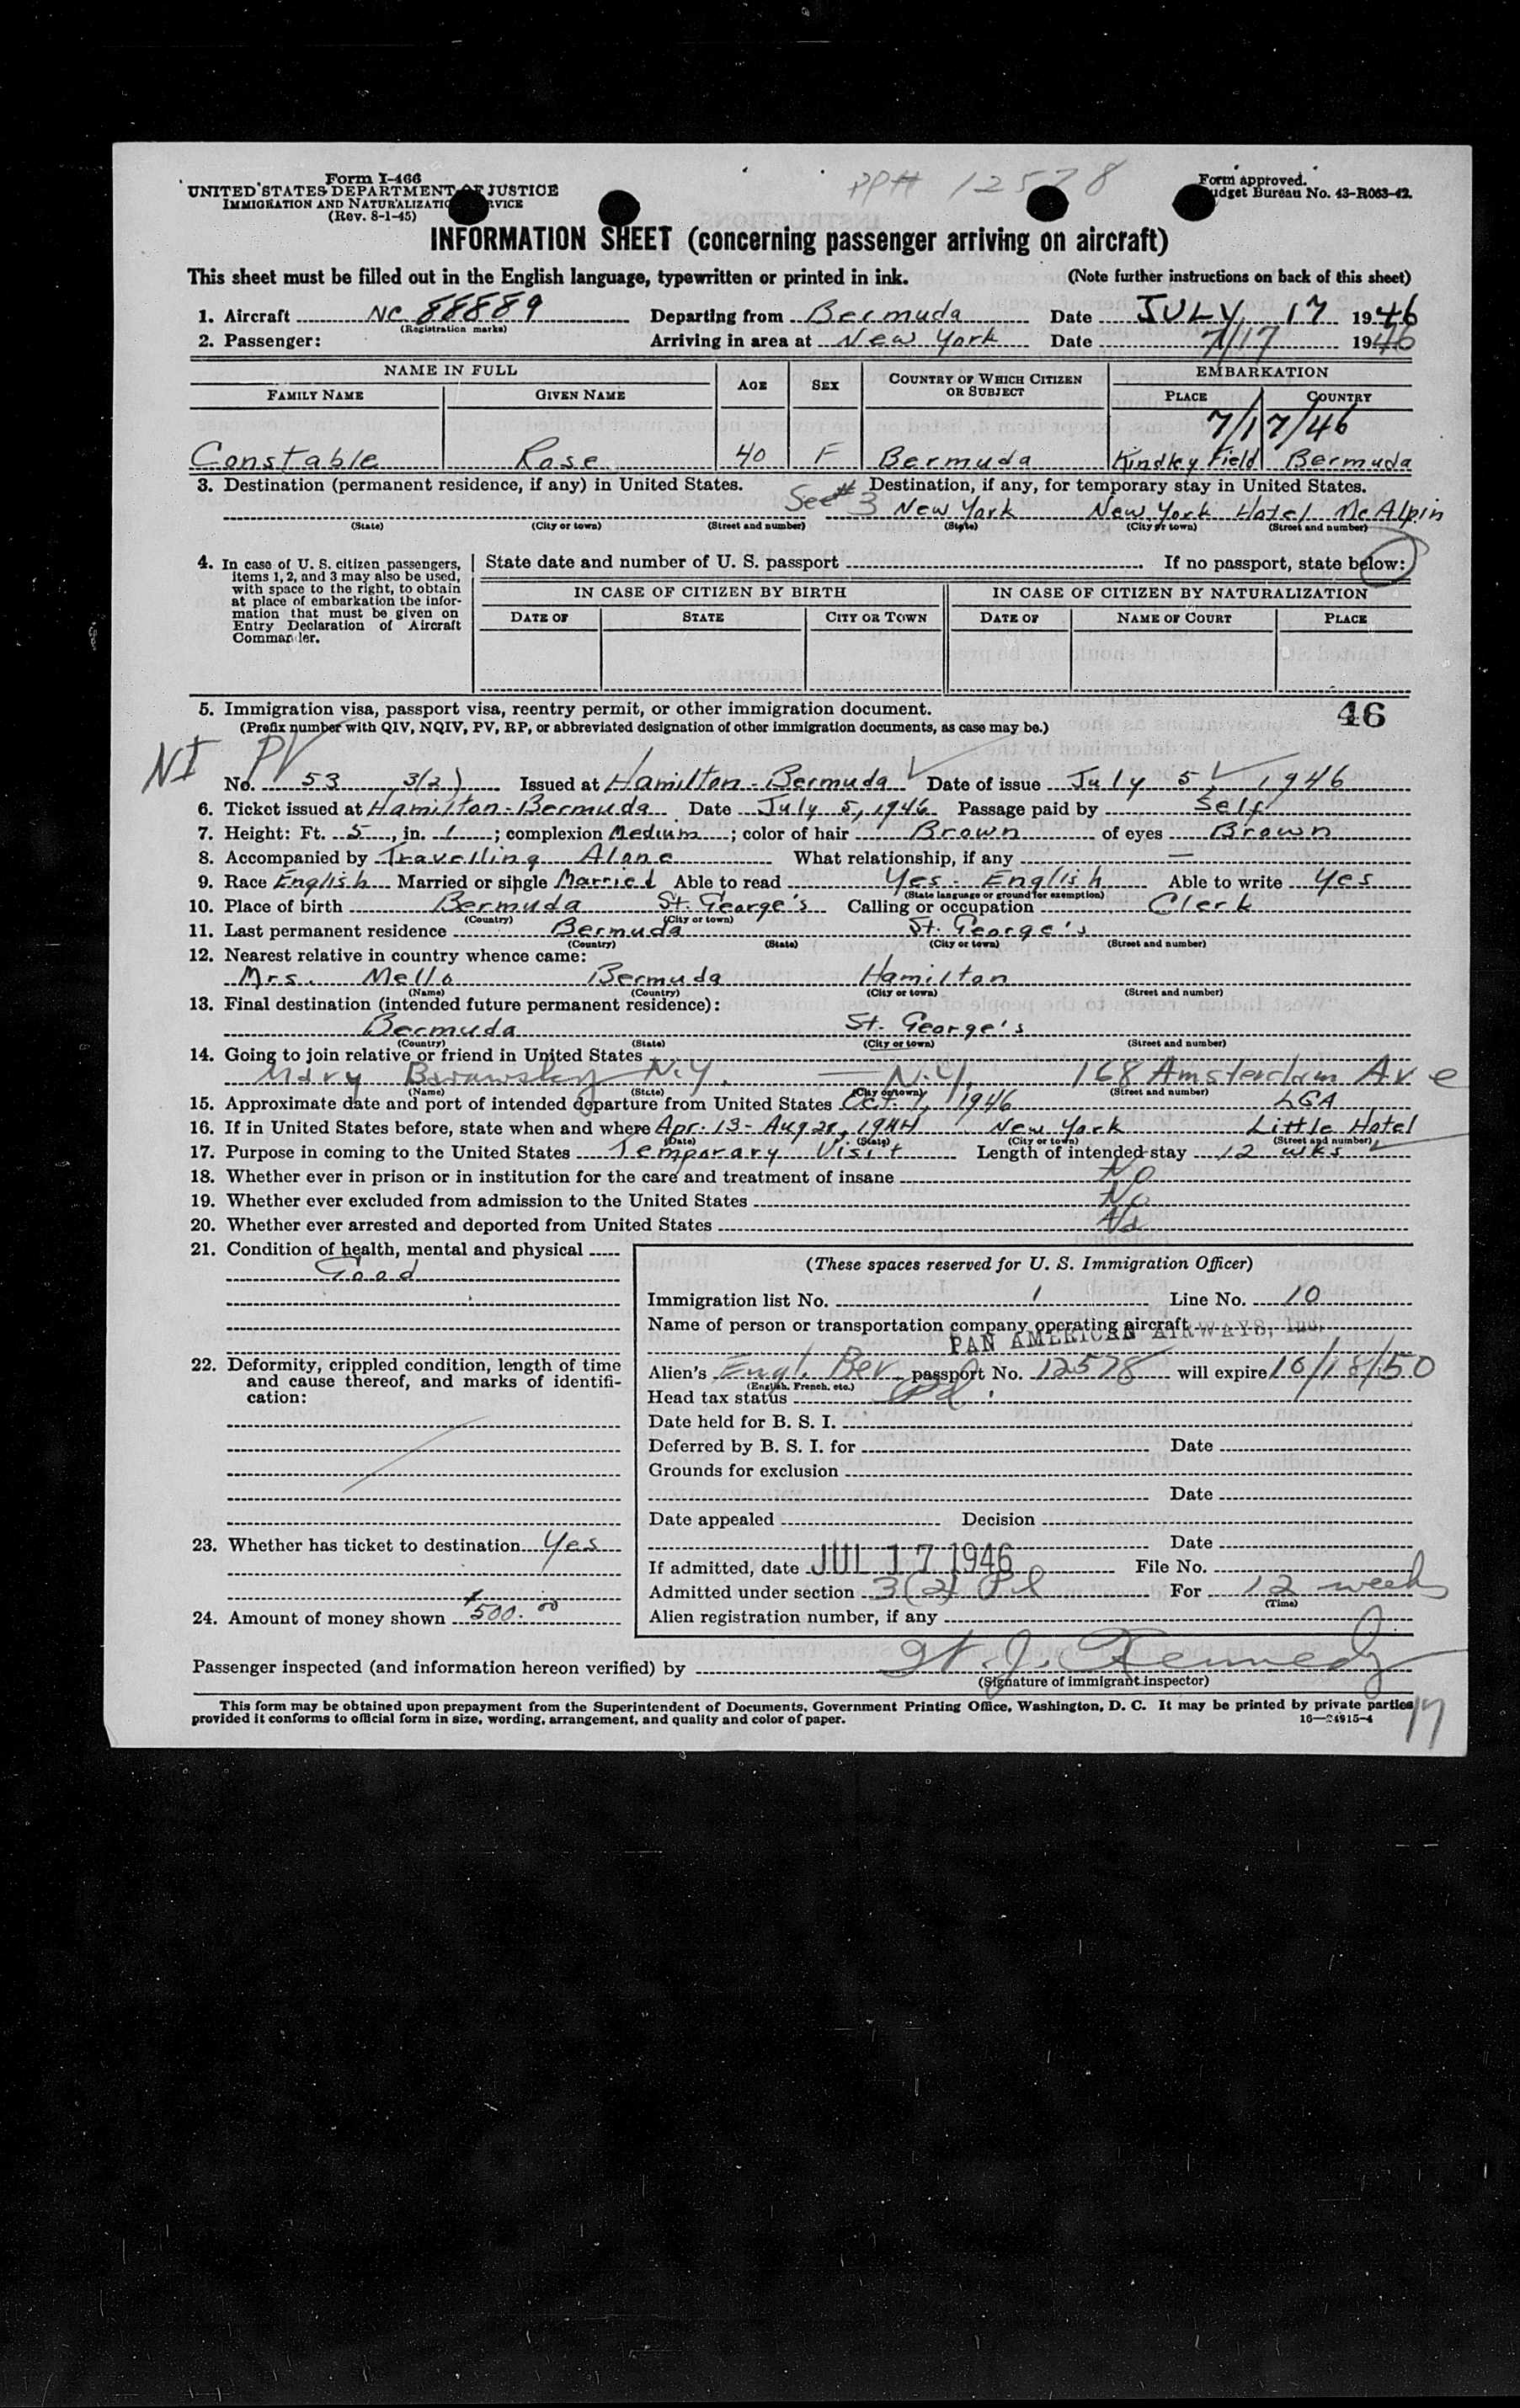 PP# 12578
Form I-466
UNITED STATES DEPARTMENT OF JUSTICE
IMMIGRATION AND NATURALIZATION SERVICE
(Rev. 8-1-45)
Form approved.
Budget Bureau No. 43-R063-42.
INFORMATION SHEET (concerning passenger arriving on aircraft)
This sheet must be filled out in the English language, typewritten or printed in ink. (Note further instructions on back of this sheet)
1. Aircraft NC 88889 Departing from Bermuda Date JULY 17 1946
(Registration marks)
2. Passenger: Arriving in area at New York Date 7/17 1946
NAME IN FULL AGE SEX COUNTRY OF WHICH CITIZEN OR SUBJECT EMBARKATION
FAMILY NAME GIVEN NAME PLACE COUNTRY
7/17/46
Constable Rose 40 F Bermuda Kindley Field Bermuda
3. Destination (permanent residence, if any) in United States. Destination, if any, for temporary stay in United States.
See # 3 New York New York Hotel McAlpin
(State) (City or town) (Street and number) (State) (City or town) (Street and number)
4. In case of U. S. citizen passengers, items 1, 2, and 3 may also be used, with space to the right, to obtain at place of embarkation the information that must be given on Entry Declaration of Aircraft Commander.
State date and number of U. S. passport If no passport, state below:
IN CASE OF CITIZEN BY BIRTH IN CASE OF CITIZEN BY NATURALIZATION
DATE OF STATE CITY OR TOWN DATE OF NAME OF COURT PLACE
5. Immigration visa, passport visa, reentry permit, or other immigration document. 46
(Prefix number with QIV, NQIV, PV, RP, or abbreviated designation of other immigration documents, as case may be.)
NI PV
No. 53 3(2) Issued at Hamilton - Bermuda Date of issue July 5, 1946
6. Ticket issued at Hamilton - Bermuda Date July 5, 1946 Passage paid by Self
7. Height: Ft. 5, in. 1; complexion Medium; color of hair Brown of eyes Brown
8. Accompanied by Travelling Alone What relationship, if any —
9. Race English Married or single Married Able to read Yes - English Able to write Yes
(State language or ground for exemption)
10. Place of birth Bermuda St. George's Calling or occupation Clerk
(Country) (City or town)
11. Last permanent residence Bermuda St. George's
(Country) (State) (City or town) (Street and number)
12. Nearest relative in country whence came:
Mrs. Mello Bermuda Hamilton
(Name) (Country) (City or town) (Street and number)
13. Final destination (intended future permanent residence):
Bermuda St. George's
(Country) (State) (City or town) (Street and number)
14. Going to join relative or friend in United States
Mary N.Y. — N.Y. 168 Amsterdam Ave
(Name) (State) (City or town) (Street and number)
15. Approximate date and port of intended departure from United States Oct. 7, 1946 LGA
16. If in United States before, state when and where Apr. 13 - Aug 28, 1944 New York Little Hotel
(Date) (State) (City or town) (Street and number)
17. Purpose in coming to the United States Temporary Visit Length of intended stay 12 wks
18. Whether ever in prison or in institution for the care and treatment of insane No
19. Whether ever excluded from admission to the United States No
20. Whether ever arrested and deported from United States No
21. Condition of health, mental and physical
Good
22. Deformity, crippled condition, length of time and cause thereof, and marks of identification:
23. Whether has ticket to destination Yes
24. Amount of money shown $500.00
(These spaces reserved for U. S. Immigration Officer)
Immigration list No. 1 Line No. 10
Name of person or transportation company operating aircraft
PAN AMERICAN AIRWAYS, Inc.
Alien's Engl. Ber passport No. 12578 will expire 10/18/50
(English, French, etc.)
Head tax status Pd.
Date held for B. S. I.
Deferred by B. S. I. for Date
Grounds for exclusion
Date
Date appealed Decision
Date
If admitted, date JUL 17 1946 File No.
Admitted under section 3(2) Pl For 12 weeks
(Time)
Alien registration number, if any
Passenger inspected (and information hereon verified) by J. Kennedy
(Signature of immigrant inspector)
This form may be obtained upon prepayment from the Superintendent of Documents, Government Printing Office, Washington, D. C. It may be printed by private parties
provided it conforms to official form in size, wording, arrangement, and quality and color of paper. 16—24915-4